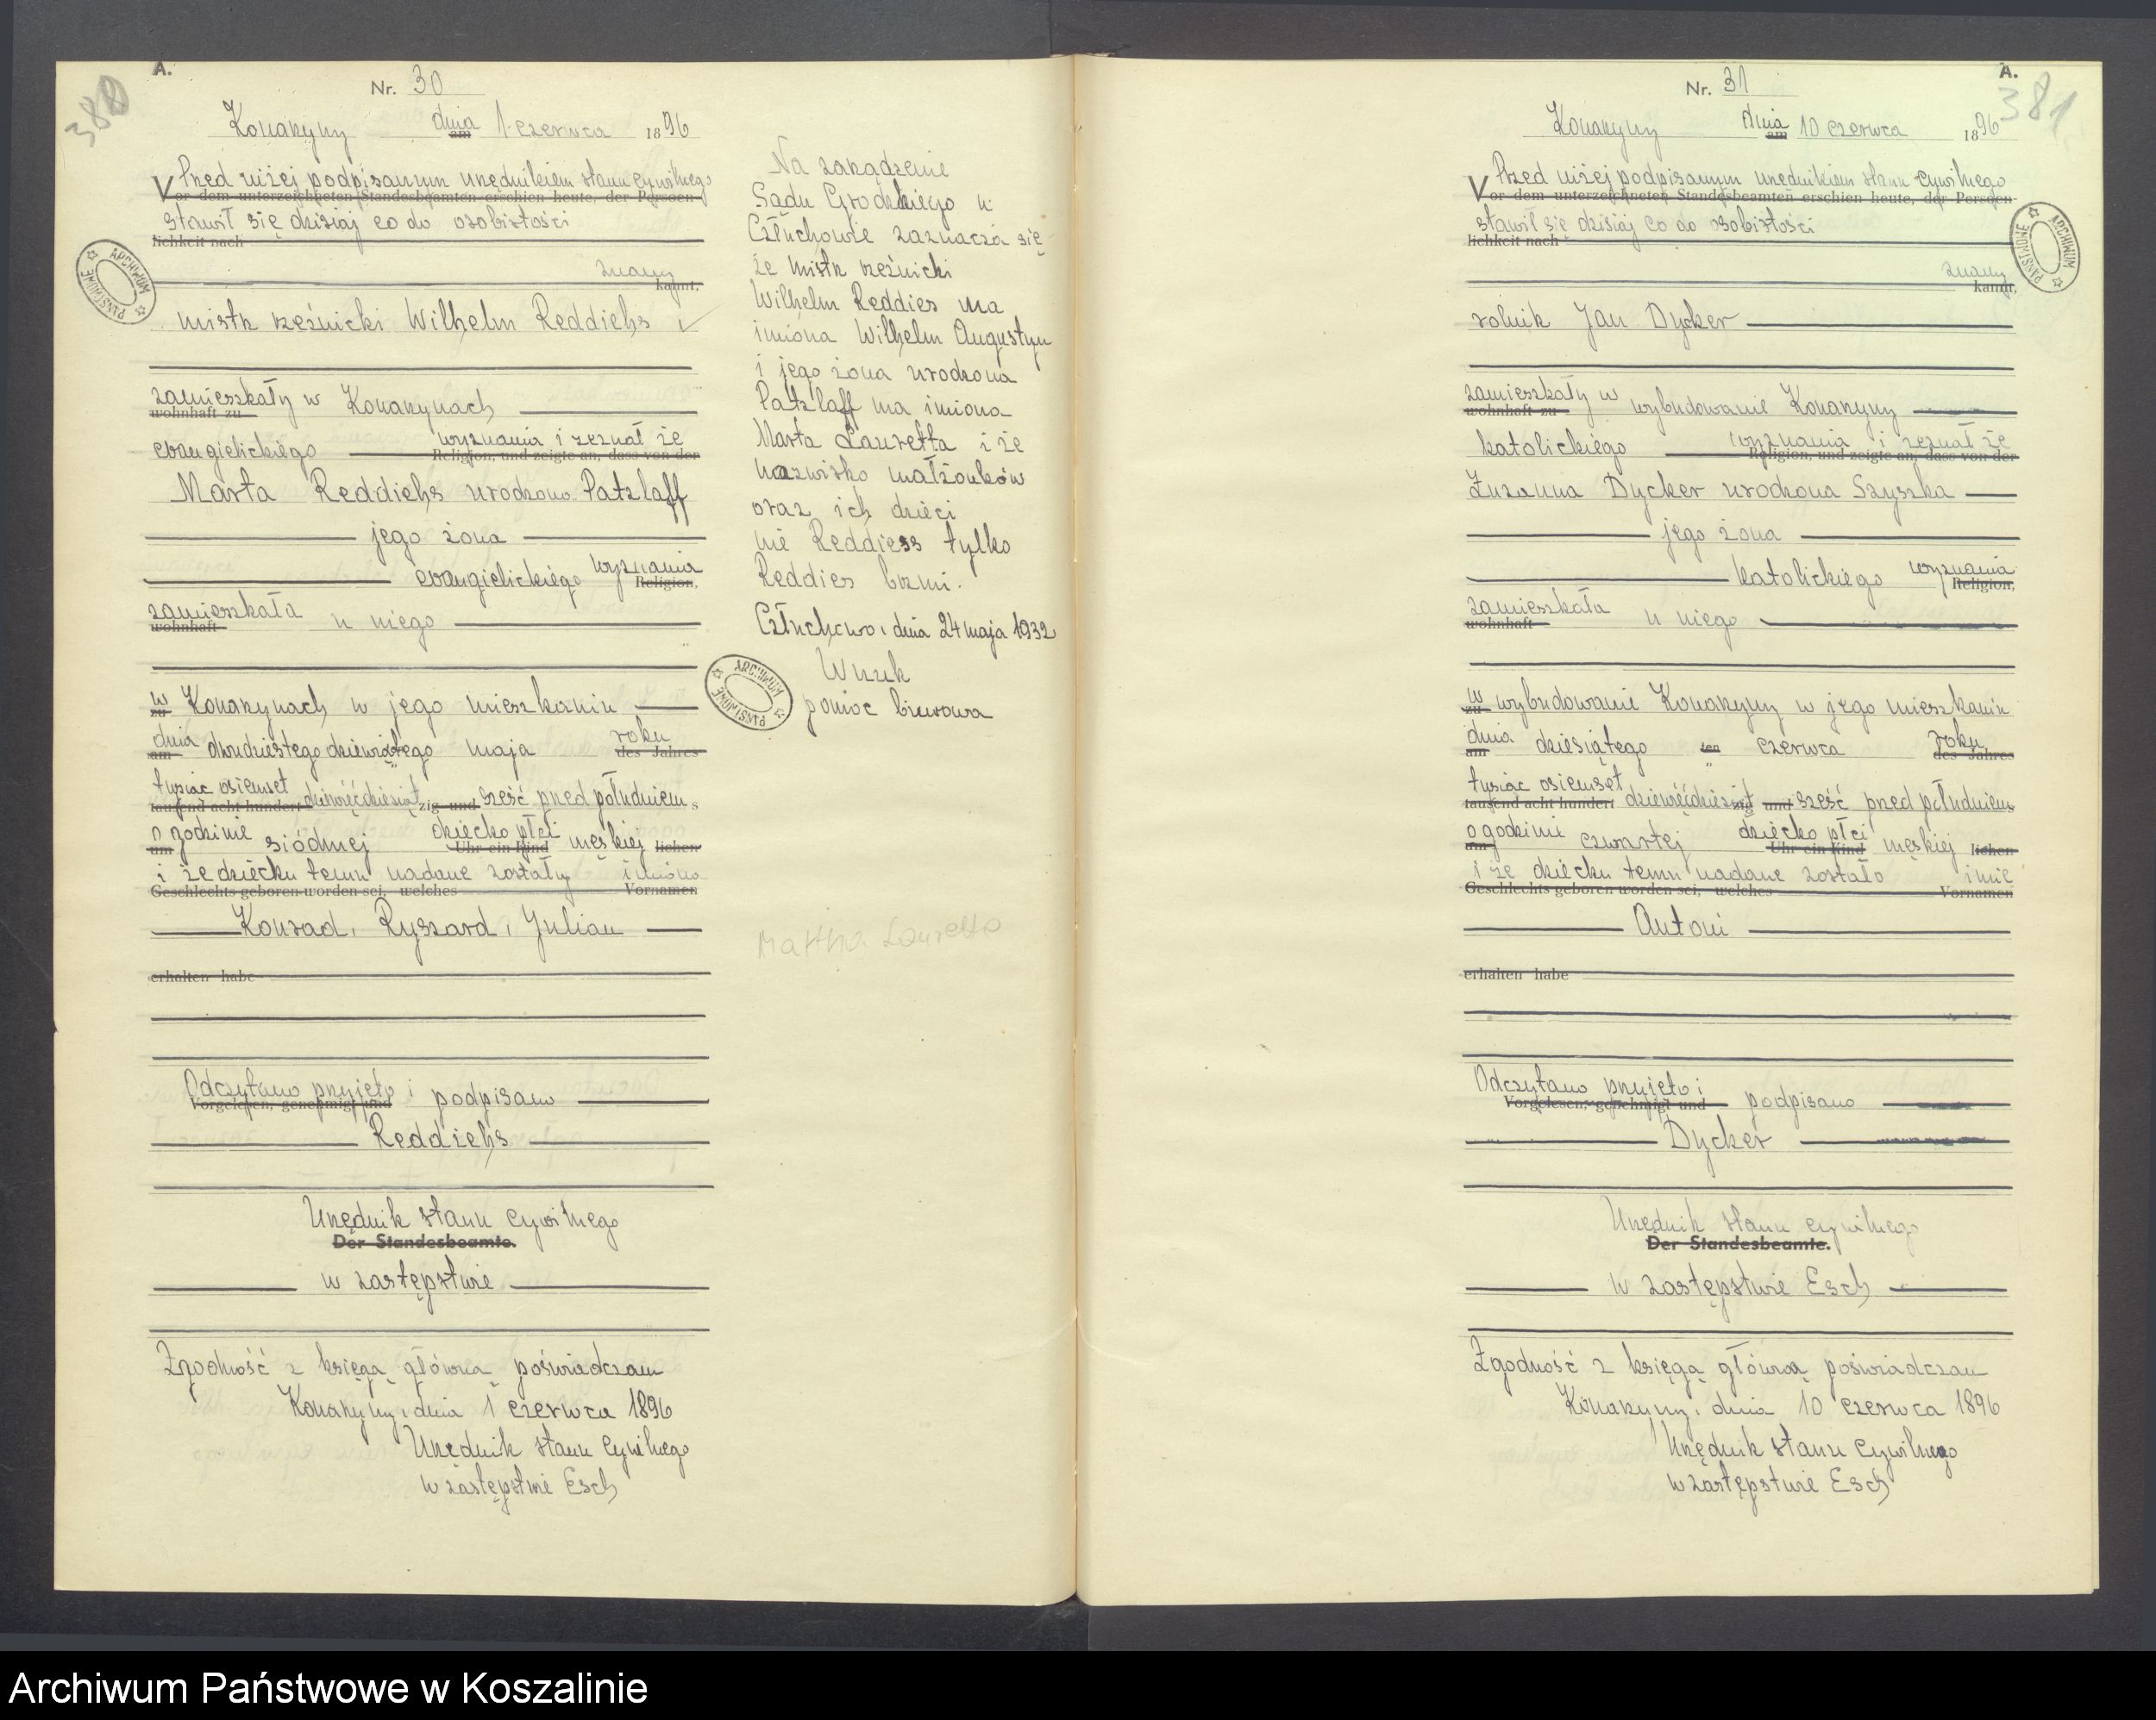 380
A.
Nr. 30
Konarzyny dnia am 1 czerwca 1896
Przed niżej podpisanym urzędnikiem stanu cywilnego
Vor dem unterzeichneten Standesbeamten erschien heute, der Persoen-
stawił się dzisiaj co do osobistości
lichkeit nach
znany
kannt,
mistrz rzeźnicki Wilhelm Reddiehs
zamieszkały w Konarzynach
wohnhaft zu
ewangielickiego wyznania i zeznał że
Religion, und zeigte an, dass von der
Marta Reddiehs urodzona Patzlaff
jego żona
ewangielickiego wyznania
Religion,
zamieszkała u niego
wohnhaft
w Konarzynach w jego mieszkaniu
zu
dnia dwudziestego dziewiątego maja roku
am des Jahres
tysiąc osiemset dziewięćdziesiąt sześć przed południem
tausend acht hundert zig und s
o godzinie siódmej dziecko płci męskiej
um Uhr ein Kind lichen
i że dziecku temu nadane zostały imiona
Geschlechts geboren worden sei, welches Vornamen
Konrad, Ryszard, Julian
erhalten habe
Odczytano przyjęto i podpisano
Vorgelesen, genehmigt und
Reddiehs
Urzędnik stanu cywilnego
Der Standesbeamte.
w zastępstwie
Zgodność z księgą główną poświadczam
Konarzyny, dnia 1 czerwca 1896
Urzędnik stanu cywilnego
w zastępstwie Esch
Na zarządzenie
Sądu Grodzkiego w
Człuchowie zaznacza się
że mistrz rzeźnicki
Wilhelm Reddies ma
imiona Wilhelm Augustyn
i jego żona urodzona
Patzlaff ma imiona
Marta Lauretta i że
nazwisko małżonków
oraz ich dzieci
nie Reddiess tylko
Reddies brzmi.
Człuchowo, dnia 24 maja 1932
Wnuk
pomoc biurowa
ARCHIWUM PAŃSTWOWE
Martha Lauretta
381
A.
Nr. 31
Konarzyny dnia am 10 czerwca 1896
Przed niżej podpisanym urzędnikiem stanu cywilnego
Vor dem unterzeichneten Standesbeamten erschien heute, der Persoen-
stawił się dzisiaj co do osobistości
lichkeit nach
znany
kannt,
rolnik Jan Dycker
zamieszkały w wybudowanie Konarzyny
wohnhaft zu
katolickiego wyznania i zeznał że
Religion, und zeigte an, dass von der
Zuzanna Dycker urodzona Szyszka
jego żona
katolickiego wyznania
Religion,
zamieszkała u niego
wohnhaft
w wybudowanie Konarzyny w jego mieszkaniu
zu
dnia dziesiątego ten czerwca roku
am des Jahres
tysiąc osiemset dziewięćdziesiąt sześć przed południem
tausend acht hundert zig und s
o godzinie czwartej dziecko płci męskiej
um Uhr ein Kind lichen
i że dziecku temu nadane zostało imie
Geschlechts geboren worden sei, welches Vornamen
Antoni
erhalten habe
Odczytano przyjęto i podpisano
Vorgelesen, genehmigt und
Dycker
Urzędnik stanu cywilnego
Der Standesbeamte.
w zastępstwie Esch
Zgodność z księgą główną poświadczam
Konarzyny, dnia 10 czerwca 1896
Urzędnik stanu cywilnego
w zastępstwie Esch
ARCHIWUM PAŃSTWOWE
Archiwum Państwowe w Koszalinie